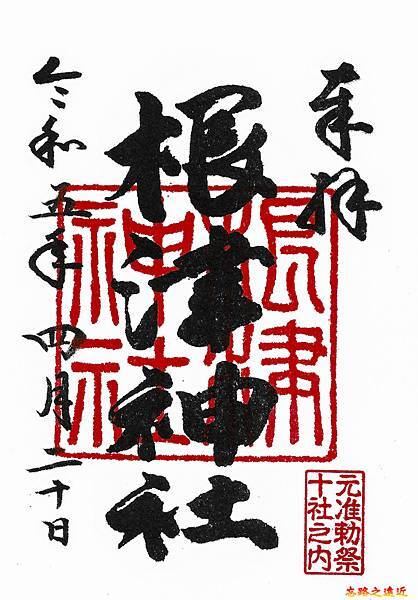 奉拝
根津神社
令和五年四月二十日
根津神社
元准勅祭
十社之内
忘路之遠近